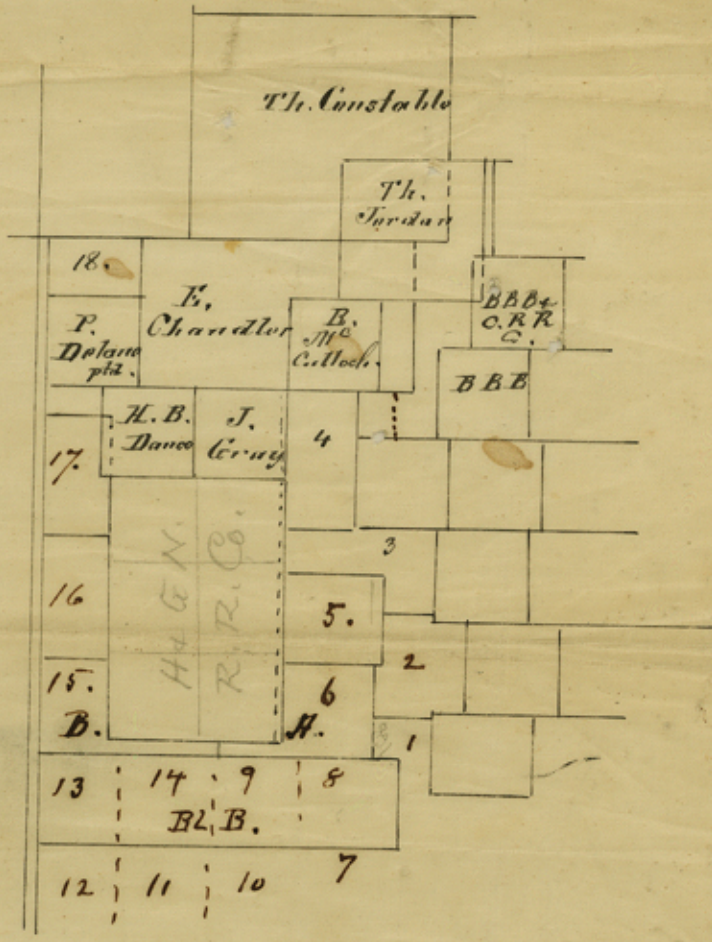 Th. Constable
Th.
Jordan
18.
E.
Chandler
P.
Delano
ptd.
B.
Mc
Culloch.
BBB&
C.RR
C.
BBB
H.B.
Dance
J.
Gray
17.
4
3
H & G N.
R. R. Co.
16
5.
2
15.
6
B.
A.
1
13
14
9
8
Bl. B.
12
11
10
7